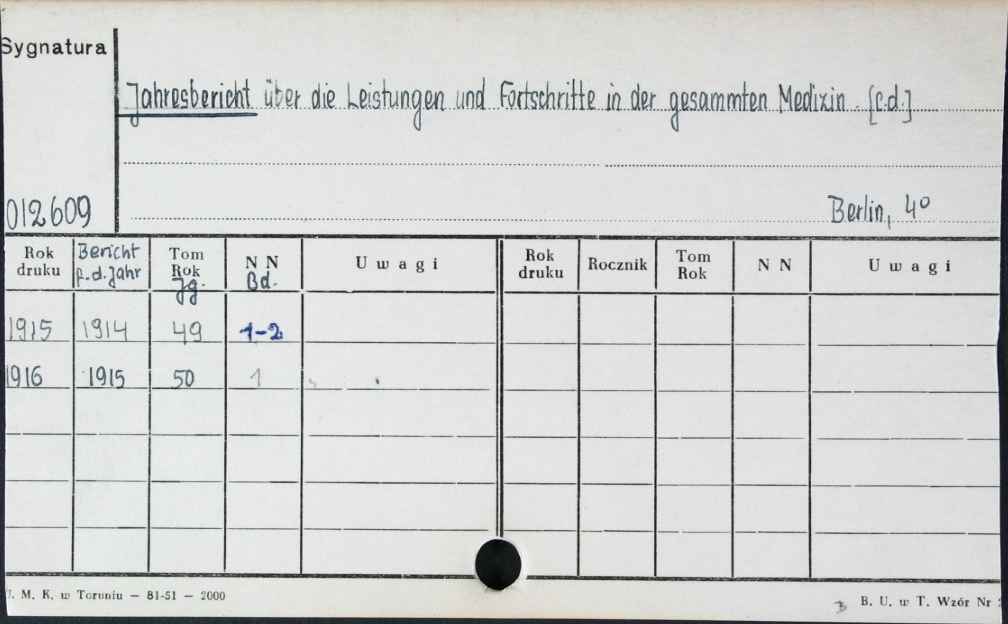 Sygnatura
Jahresbericht über die Leistungen und Fortschritte in der gesammten Medizin. [c.d.]
012609
Berlin, 4º
Rok druku Bericht f.d.Jahr Tom Rok Jg. N N Bd. Uwagi Rok druku Rocznik Tom Rok N N Uwagi
1915 1914 49 1-2
1916 1915 50 1
M. K. w Toruniu — 81-51 — 2000
B. U. w T. Wzór Nr